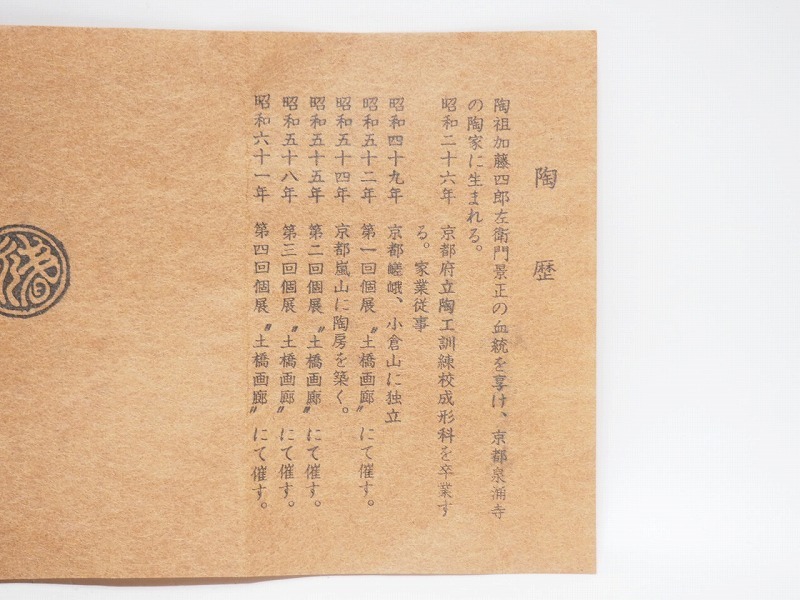 陶歴
陶祖加藤四郎左衛門景正の血統を享け、京都泉涌寺
の陶家に生まれる。
昭和二十六年　京都府立陶工訓練校成形科を卒業す
る。家業従事
昭和四十九年　京都嵯峨、小倉山に独立
昭和五十二年　第一回個展〝土橋画廊〟にて催す。
昭和五十四年　京都嵐山に陶房を築く。
昭和五十五年　第二回個展〝土橋画廊〟にて催す。
昭和五十八年　第三回個展〝土橋画廊〟にて催す。
昭和六十一年　第四回個展〝土橋画廊〟にて催す。